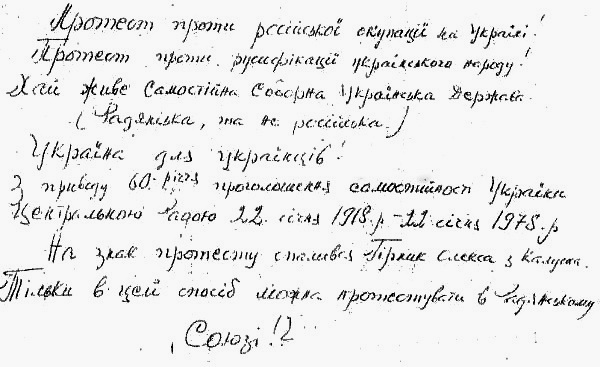 Протест проти російської окупації на Україні!
Протест проти русифікації українського народу!
Хай живе Самостійна Соборна Українська Держава
(Радянська, та не російська)
Україна для українців!
З приводу 60-річчя проголошення самостійності України
Центральною Радою 22 січня 1918.р - 22 січня 1978.р
На знак протесту спалився Гірник Олекса з Калуша.
Тільки в цей спосіб можна протестувати в Радянському
Союзі!?